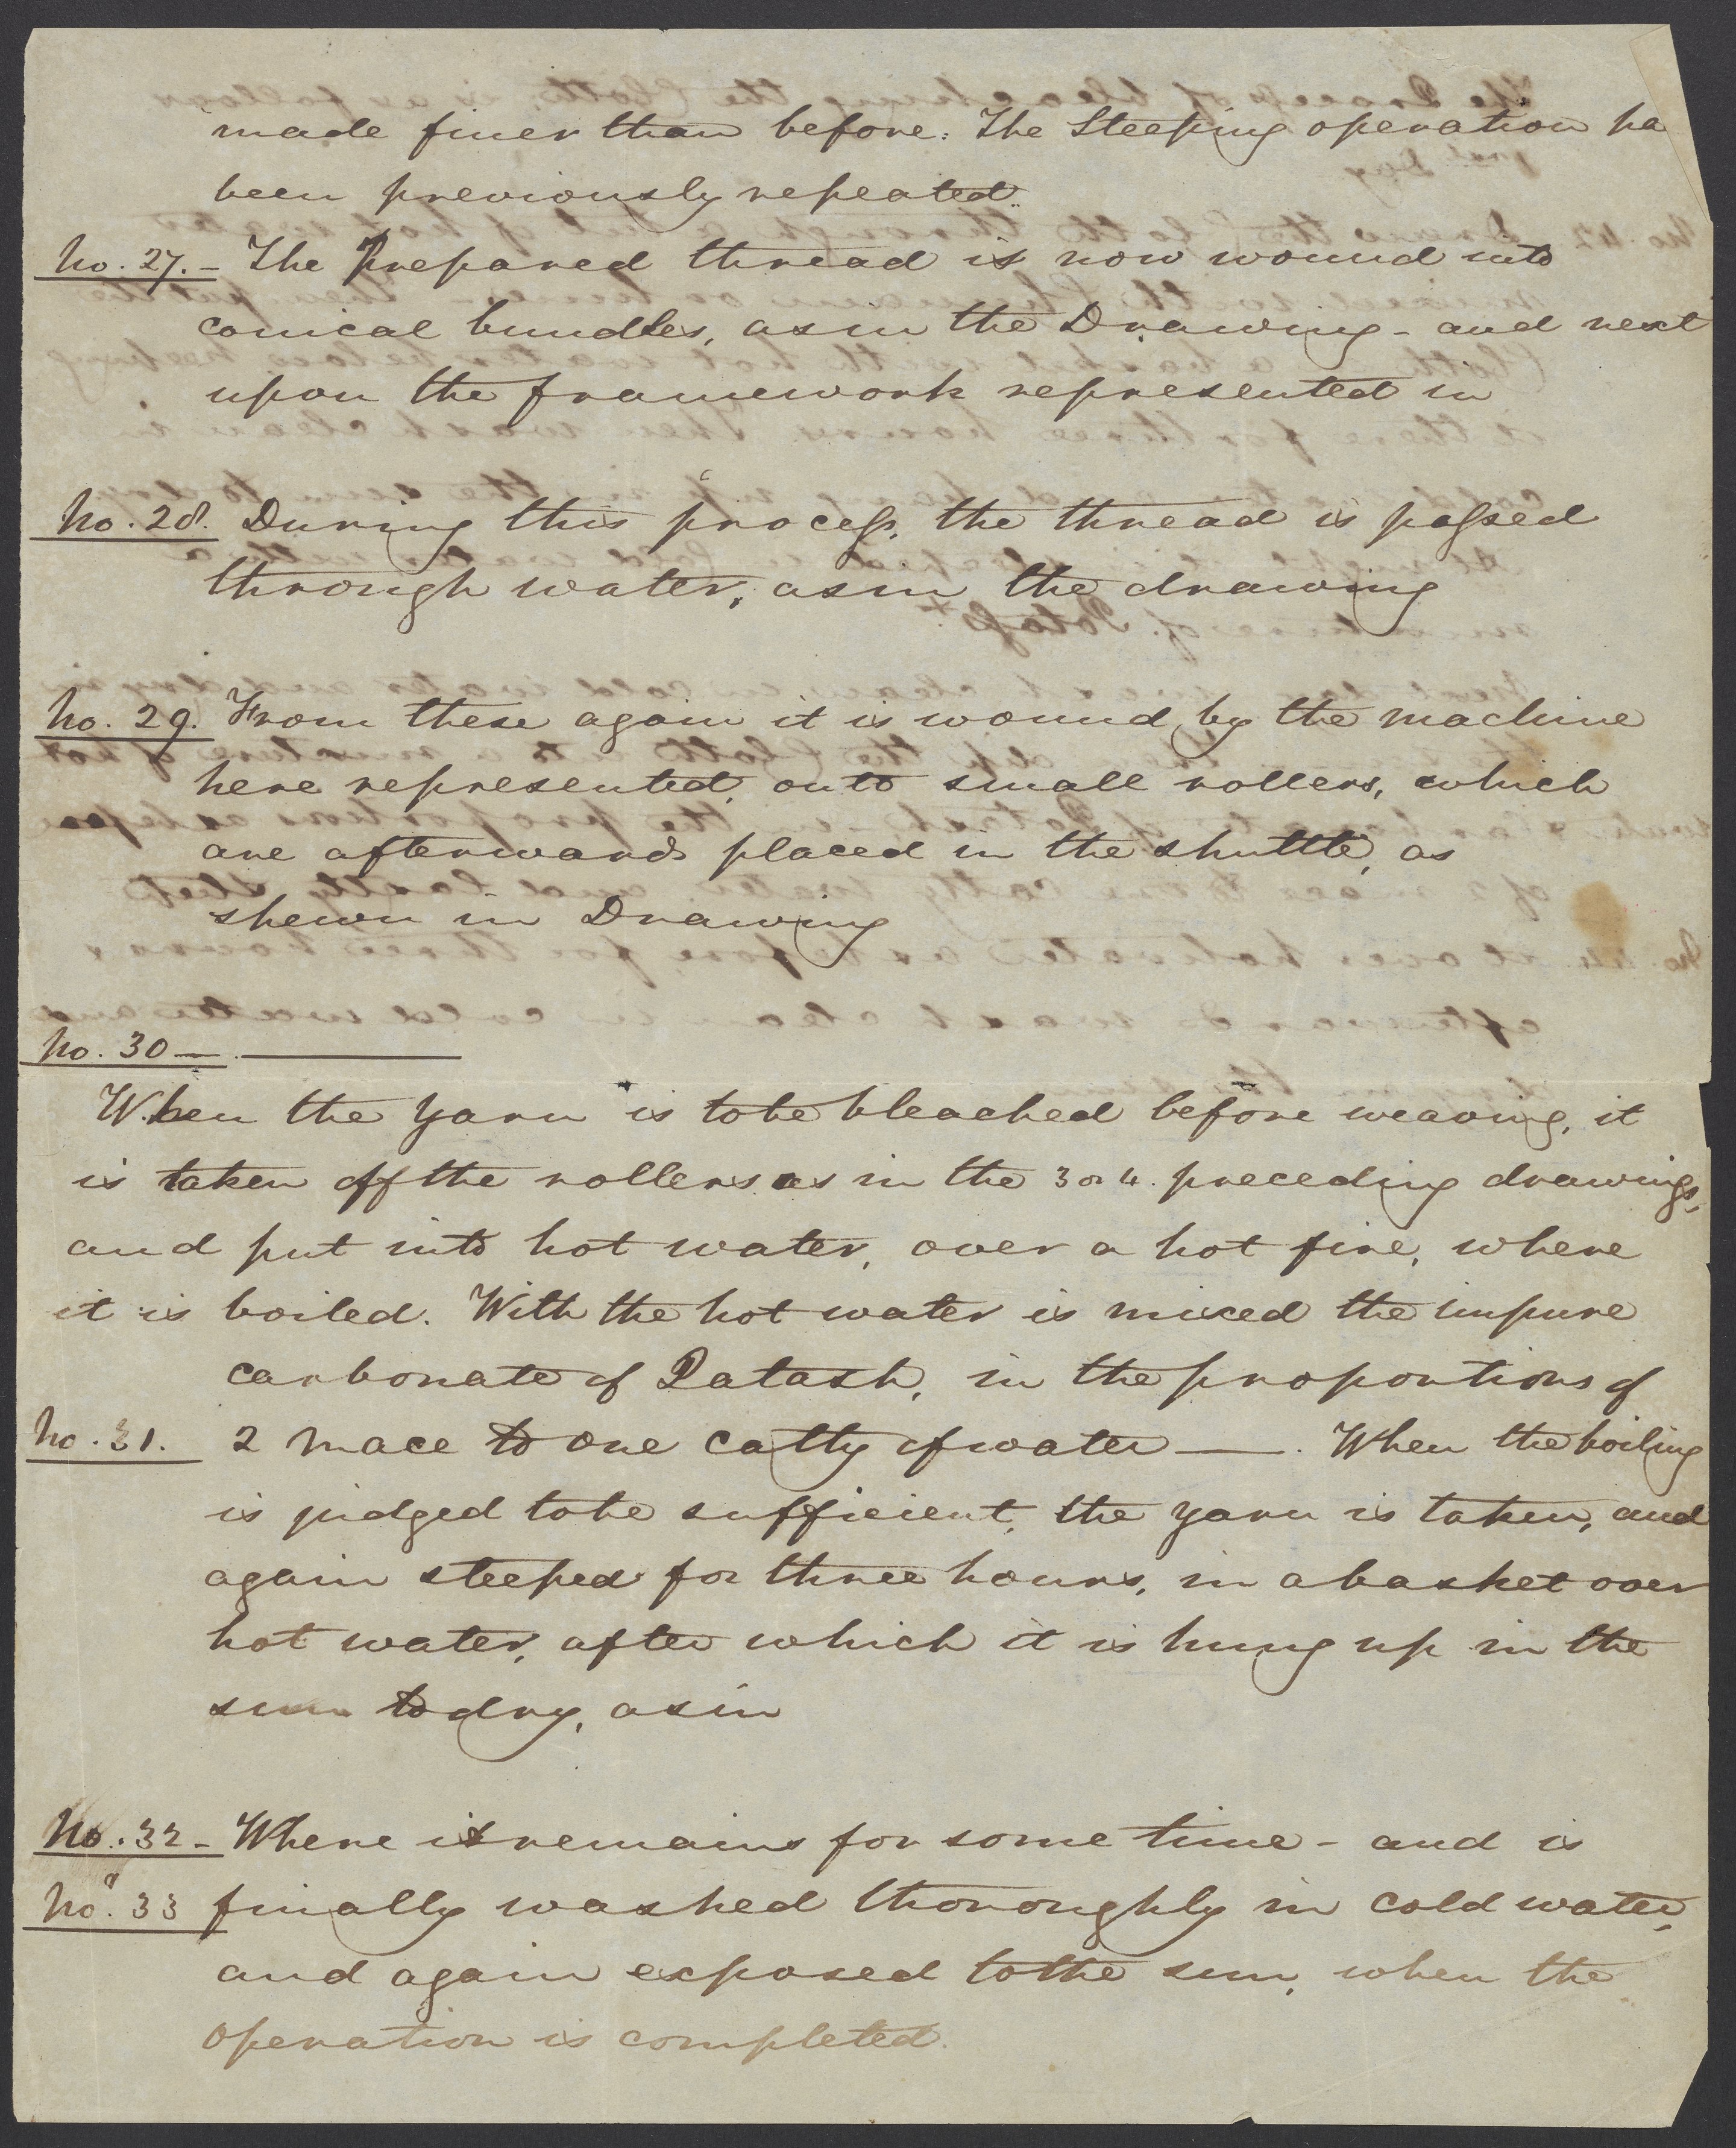 made finer than before. The Steeping operation ha
been previously repeated.
No. 27. - The Prepared thread is now wound into
conical bundles, as in the Drawing - and next
upon the framework represented in
No. 28. During this process, the thread is passed
through water, as in the drawing
No. 29. From these again it is wound by the machine
here represented, onto small rollers, which
are afterwards placed in the shuttle, as
shewn in Drawing
No. 30 —
When the Yarn is to be bleached before weaving, it
is taken off the rollers as in the 3 or 4. preceding drawings,
and put into hot water, over a hot fire, where
it is boiled. With the hot water is mixed the impure
carbonate of Patash, in the proportions of
No. 31. 2 mace to one catty of water — . When the boiling
is judged to be sufficient, the yarn is taken, and
again steeped for three hours, in a basket over
hot water, after which it is hung up in the
sun to dry, as in
No. 32 - Where it remains for some time - and is
No. 33 finally washed thoroughly in cold water,
and again exposed to the sun, when the
operation is completed.